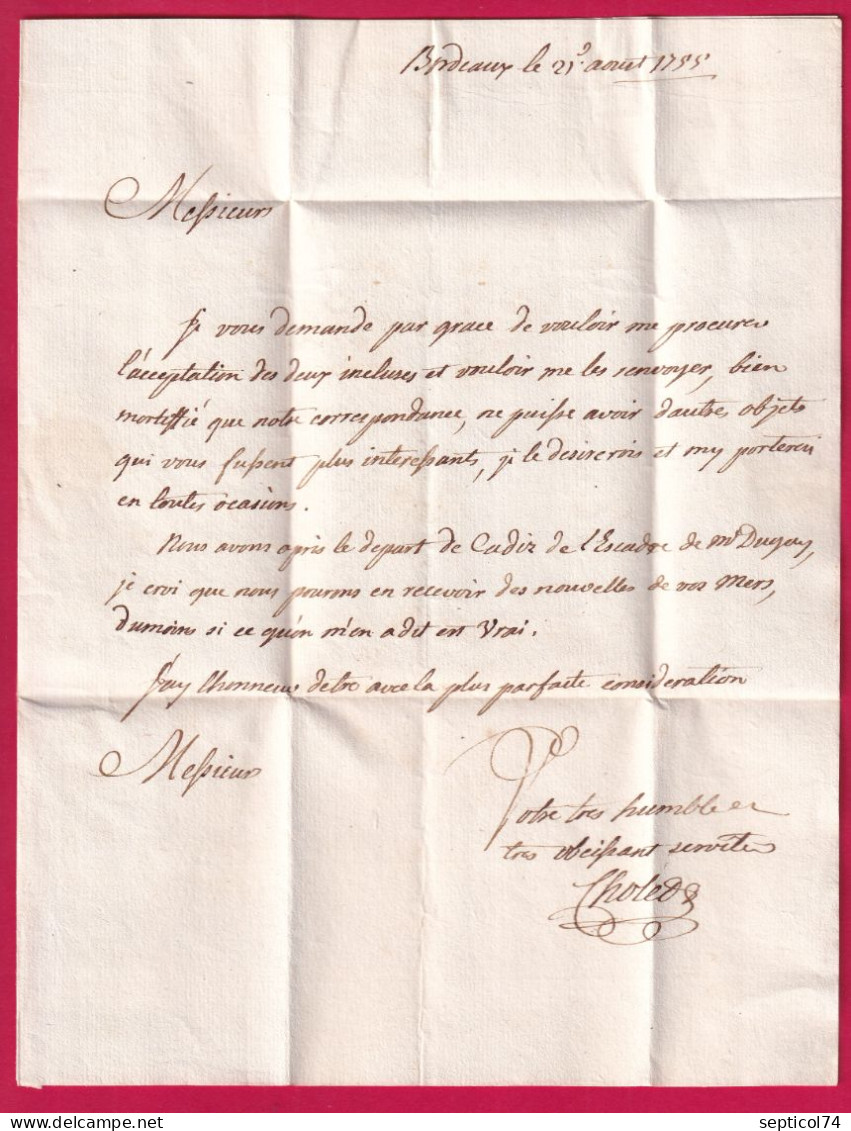 Bordeaux le 21e. aoust 1755
Messieurs
Je vous demande par grace de vouloir me procurer
l'acceptation des deux incluses et vouloir me les renvoyer, bien
mortiffié que notre correspondance, ne puisse avoir d'autres objets
qui vous fussent plus interessants, je le desirerois et my porterai
en toutes ocasions.
Nous avons apris le depart de Cadiz de l'Escadre de Mr Duguay,
je croi que nous pourons en recevoir des nouvelles de vos Mers,
dumoins si ce qu'on m'en a dit est Vrai.
J'ay lhonneur detre avec la plus parfaite consideration
Messieurs
Votre tres humble et
tres obeissant serviteur
Choled
septicol74